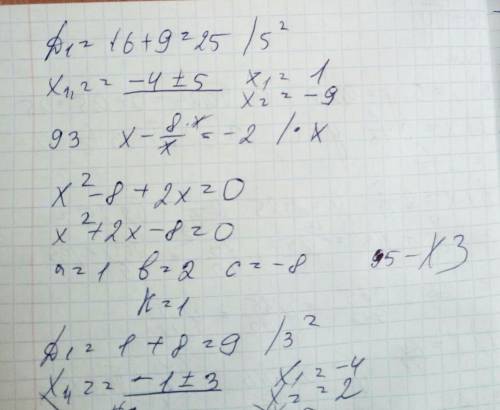 D₁ = 16+9=25 /5²
x₁,₂ = -4 ± 5 x₁ = 1
x₂ = -9
93 x - 8/x ·x = -2 /· x
x² - 8 + 2x = 0
x² + 2x - 8 = 0
a=1 b=2 c=-8 95 - X3
K=1
D₁ = 1 + 8 = 9 /3²
x₁ = -1 ± 3 x₁ = -4
x₂ = 2